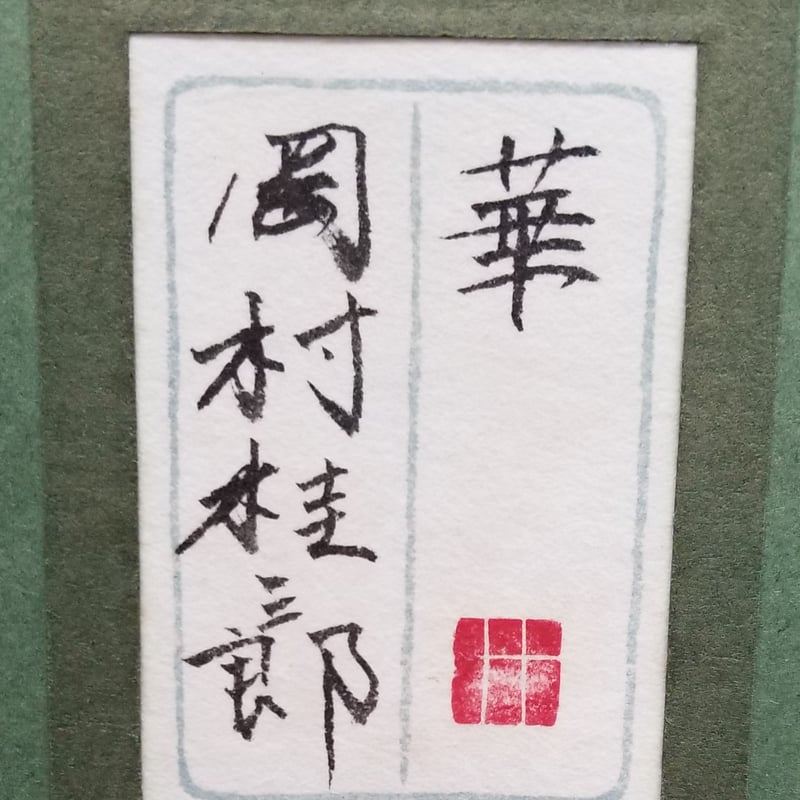 華
岡村桂三郎